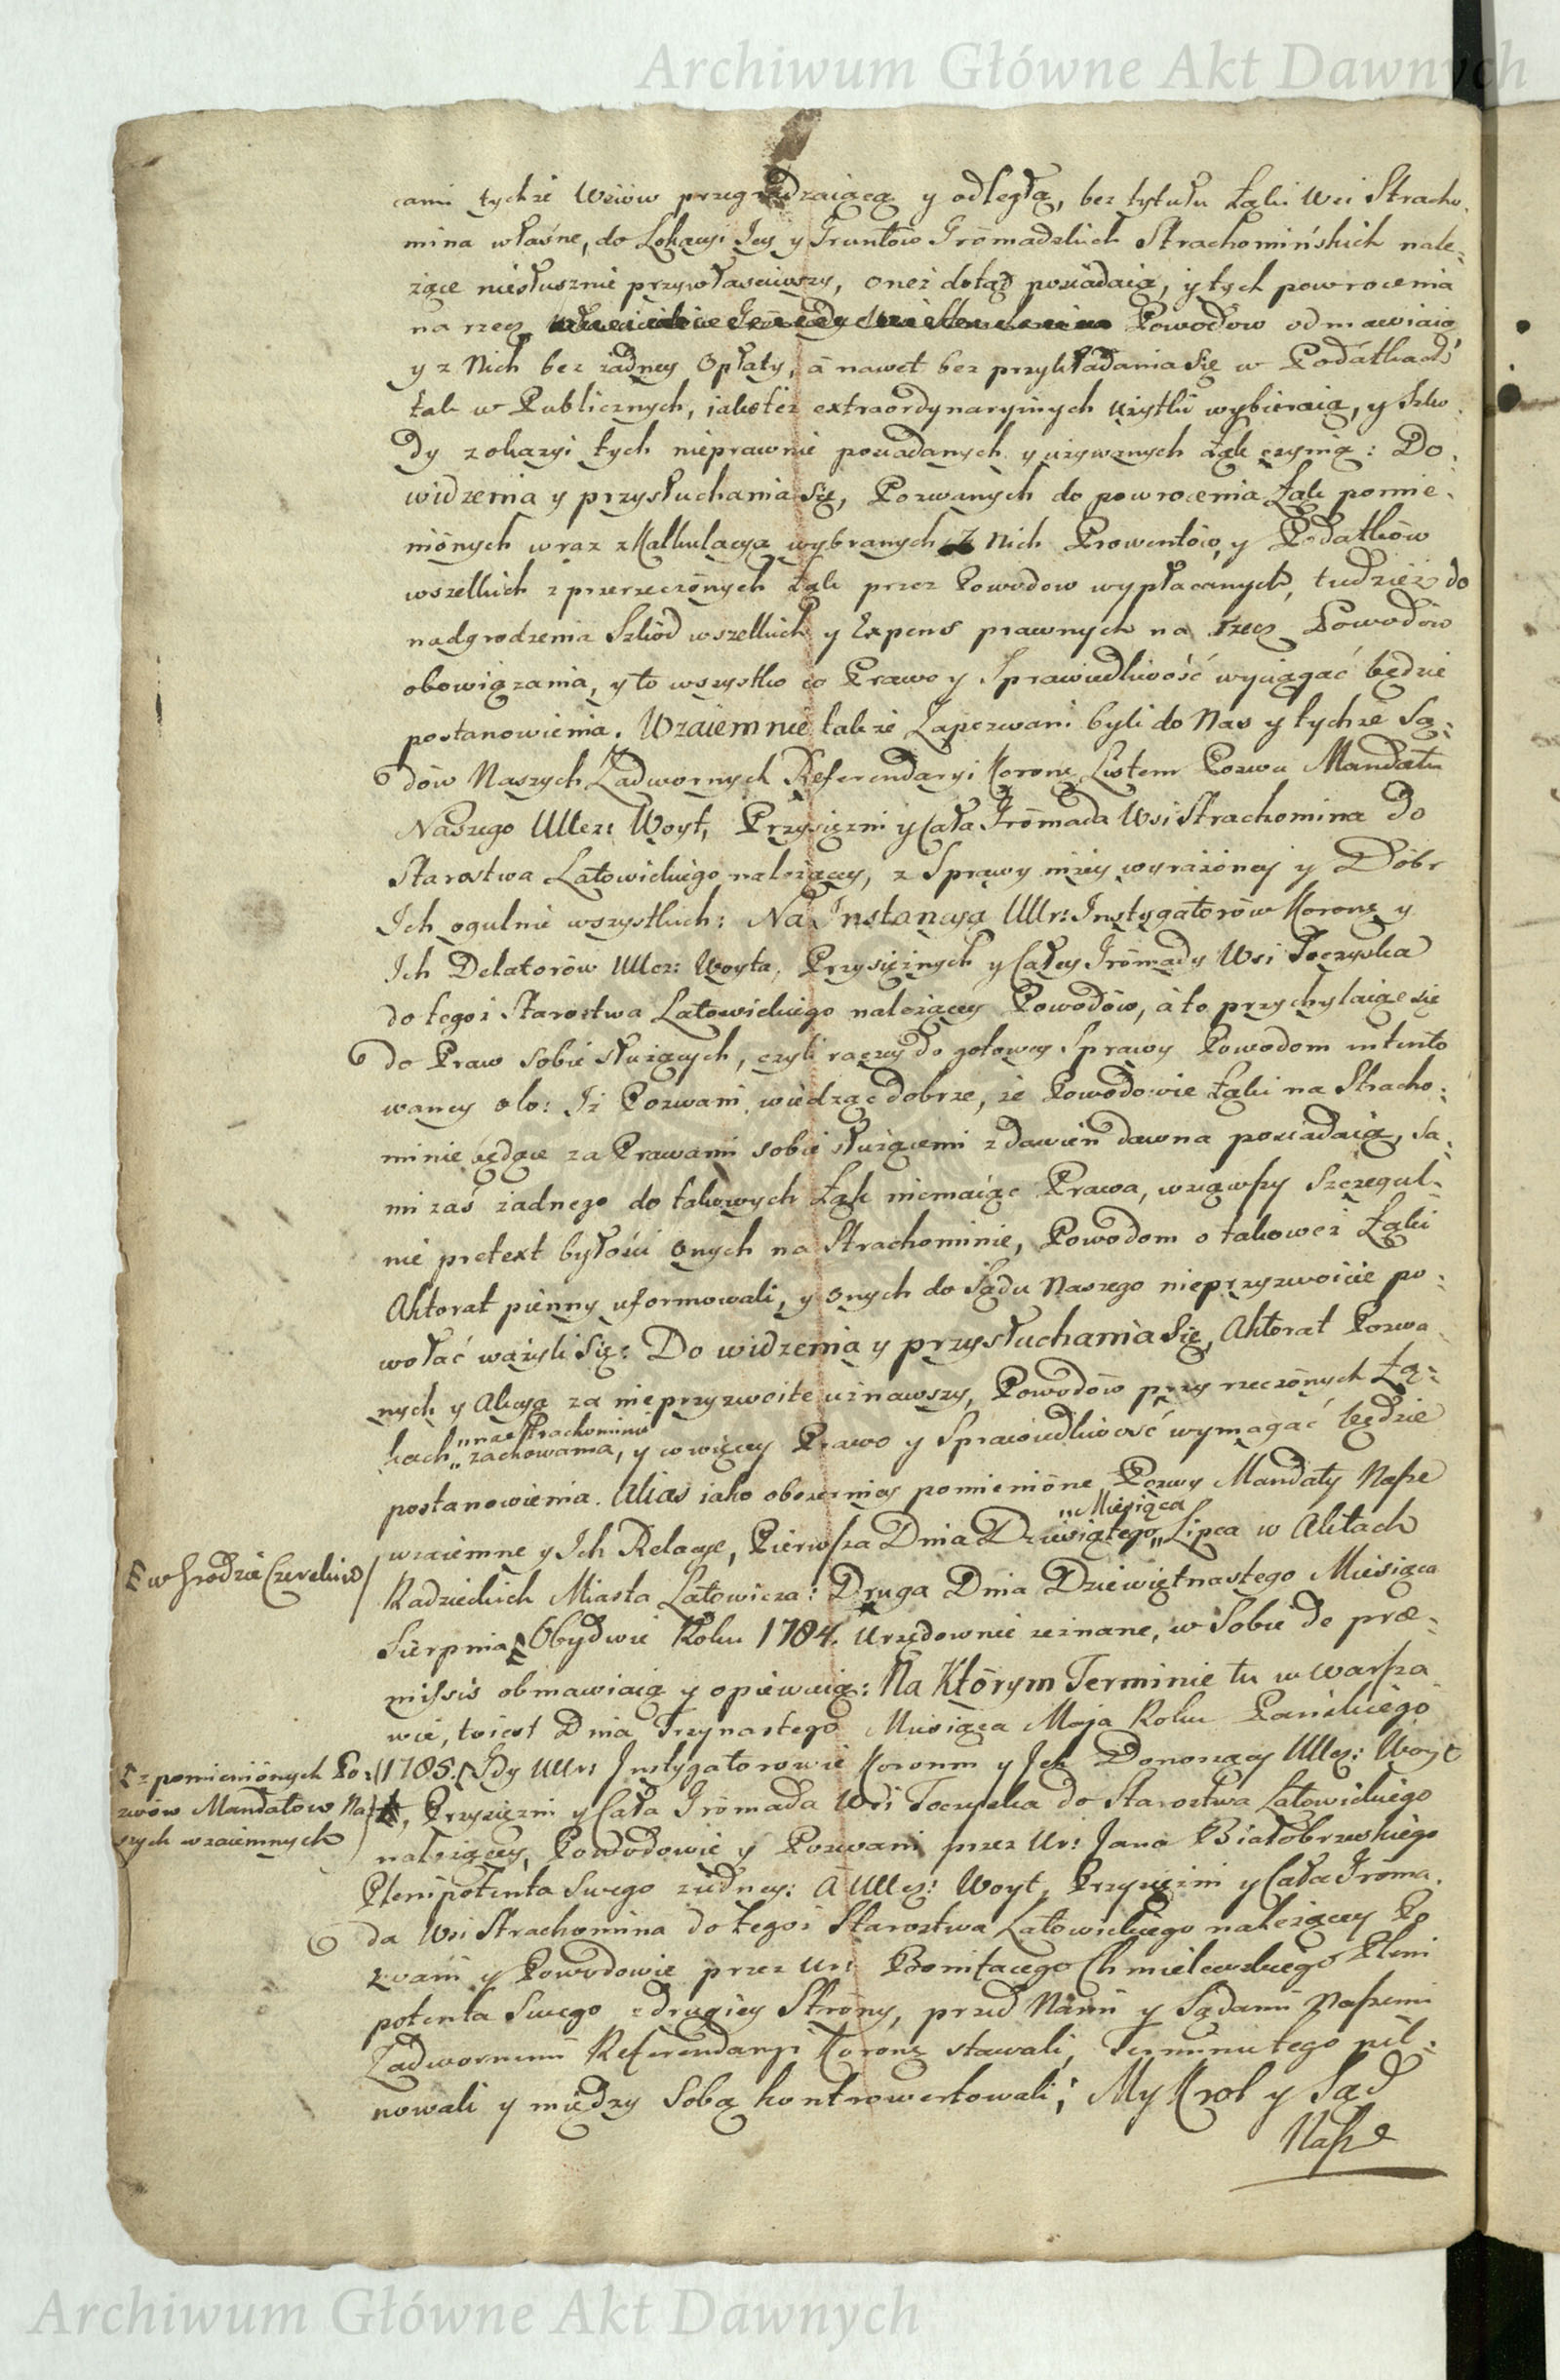 Archiwum Główne Akt Dawnych
cami tychże Wsiów przegradzaiącą y odległą, bez tytułu Łąki Wsi Stracho-
mina własne, do Lokacyi Jey y Gruntów Gromadzkich Strachomińskich nale-
żące niesłusznie przywłaściwszy, onez dotąd posiadaią, y tych powrocenia
na rzecz Powodow odmawiaią
y z Nich bez żadney Opłaty, á nawet bez przykładania Się w Podátkach
tak w Publicznych, iako też extraordynaryinych użytki wybieraią, y Szko-
dy z okazyi tych nieprawnie posiadanych y używanych Łąk czynią: Do
widzenia y przysłuchania się, Pozwanych do powrocenia Łąk pomie-
nionych wraz z Kalkulacyą wybranych z Nich Prowentów, y Podatków
wszelkich z przerzeczonych Łąk przez Powodow wypłacanych, tudzież do
nadgrodzenia Szkód wszelkich y Expens prawnych na rzecz Powodów
obowiązania, y to wszystko co Prawo y Sprawiedliwość wyciągać będzie
postanowienia. Wzaiemnie także Zapozwani byli do Nas y tychże Są-
dów Naszych Zadwornych Referendaryi Koronę Listem Pozwu Mandatu
Naszego Ucz: Woyt, Przysiężni y Cała Gromada Wsi Strachomina Do
Starostwa Latowickiego należącey, z Sprawy niżey wyrażoney y Dóbr
Ich ogulnie wszystkich: Na Instancyą Ur: Instygatorów Koronę y
Ich Delatorów Ucz: Woyta, Przysiężnych y Całey Gromady Wsi Toczyska
do tegoż Starostwa Latowickiego należącey Powodów, á to przychylaiąc się
do Praw sobie służących, czyli raczey do gotowey Sprawy Powodom intento
waney o to: Iż Pozwani, wiedząc dobrze, że Powodowie Łąki na Stracho-
minie będące za Prawami sobie służącemi zdawien dawna posiadaią, Sa-
mi zaś żadnego do takowych Łąk niemaiąc Prawa, wziąwszy Szczegul-
nie pretext byłości onych na Strachominie, Powodom o takowez Łąki
Aktorat pienny uformowali, y onych do Sądu Naszego nieprzyzwoicie po-
wołać ważyli Się: Do widzenia y przysłuchania Się, Aktorat Pozwa
nych y Akcyą za nieprzyzwoite uznawszy, Powodów przy rzeczonych Łą-
kach „na Strachominie „zachowania, y co więcey Prawo y Sprawiedliwość wymagać będzie
postanowienia. Alias iako obszerniey pomienione Pozwy Mandaty Nasze
wzaiemne y Ich Relacye, Pierwsza Dnia Dziewiątego „Miesiąca „Lipca w Aktach
Radzieckich Miasta Latowicza: Druga Dnia Dziewiętnastego Miesiąca
w Grodzie Czerskim
Sierpnia Obydwie Roku 1784. Urzędownie zeznane, w Sobie de præ-
missis obmawiaią y opiewaią: Na Którym Terminie tu w Warsza
wie, to iest Dnia Trzynastego Miesiąca Maja Roku Pańskiego
z pomienionych Po-
zwów Mandatow Na-
szych wzaiemnych
1785. Gdy Ur: Instygatorowie Koronni y Ich Donoszący Ucz: Woyt
Przysiężni y Cała Gromada Wsi Toczyska do Starostwa Latowickiego
należącey, Powodowie y Pozwani przez Ur: Jana Białobrzeskiego
Plenipotenta Swego z iedney: A Ucz: Woyt, Przysiężni y Cała Groma-
da Wsi Strachomina do tegoż Starostwa Latowickiego należącey Po
zwani y Powodowie przez Ur: Bonifacego Chmielewskiego Pleni
potenta Swego z drugiey Strony, przed Nami y Sądami Naszemi
Zadwornemi Referendaryi Koronę stawali, Terminu tego pil-
nowali y między Sobą kontrowertowali; My Krol y Sąd
Nasz
Archiwum Główne Akt Dawnych